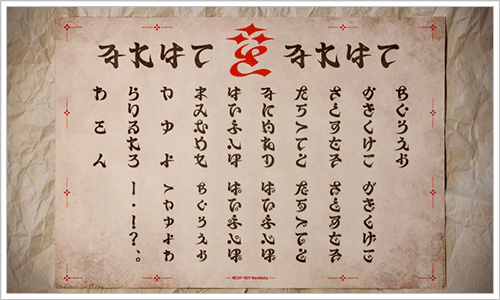 なれはて なれはて
あいうえお
かきくけこ がぎぐげご
さしすせそ ざじずぜぞ
たちつてと だぢづでど
なにぬねの ばびぶべぼ
はひふへほ ぱぴぷぺぽ
まみむめも ぁぃぅぇぉ
や ゆ よ っゃゅょゎ
らりるれろ ー・！？、。
わ を ん